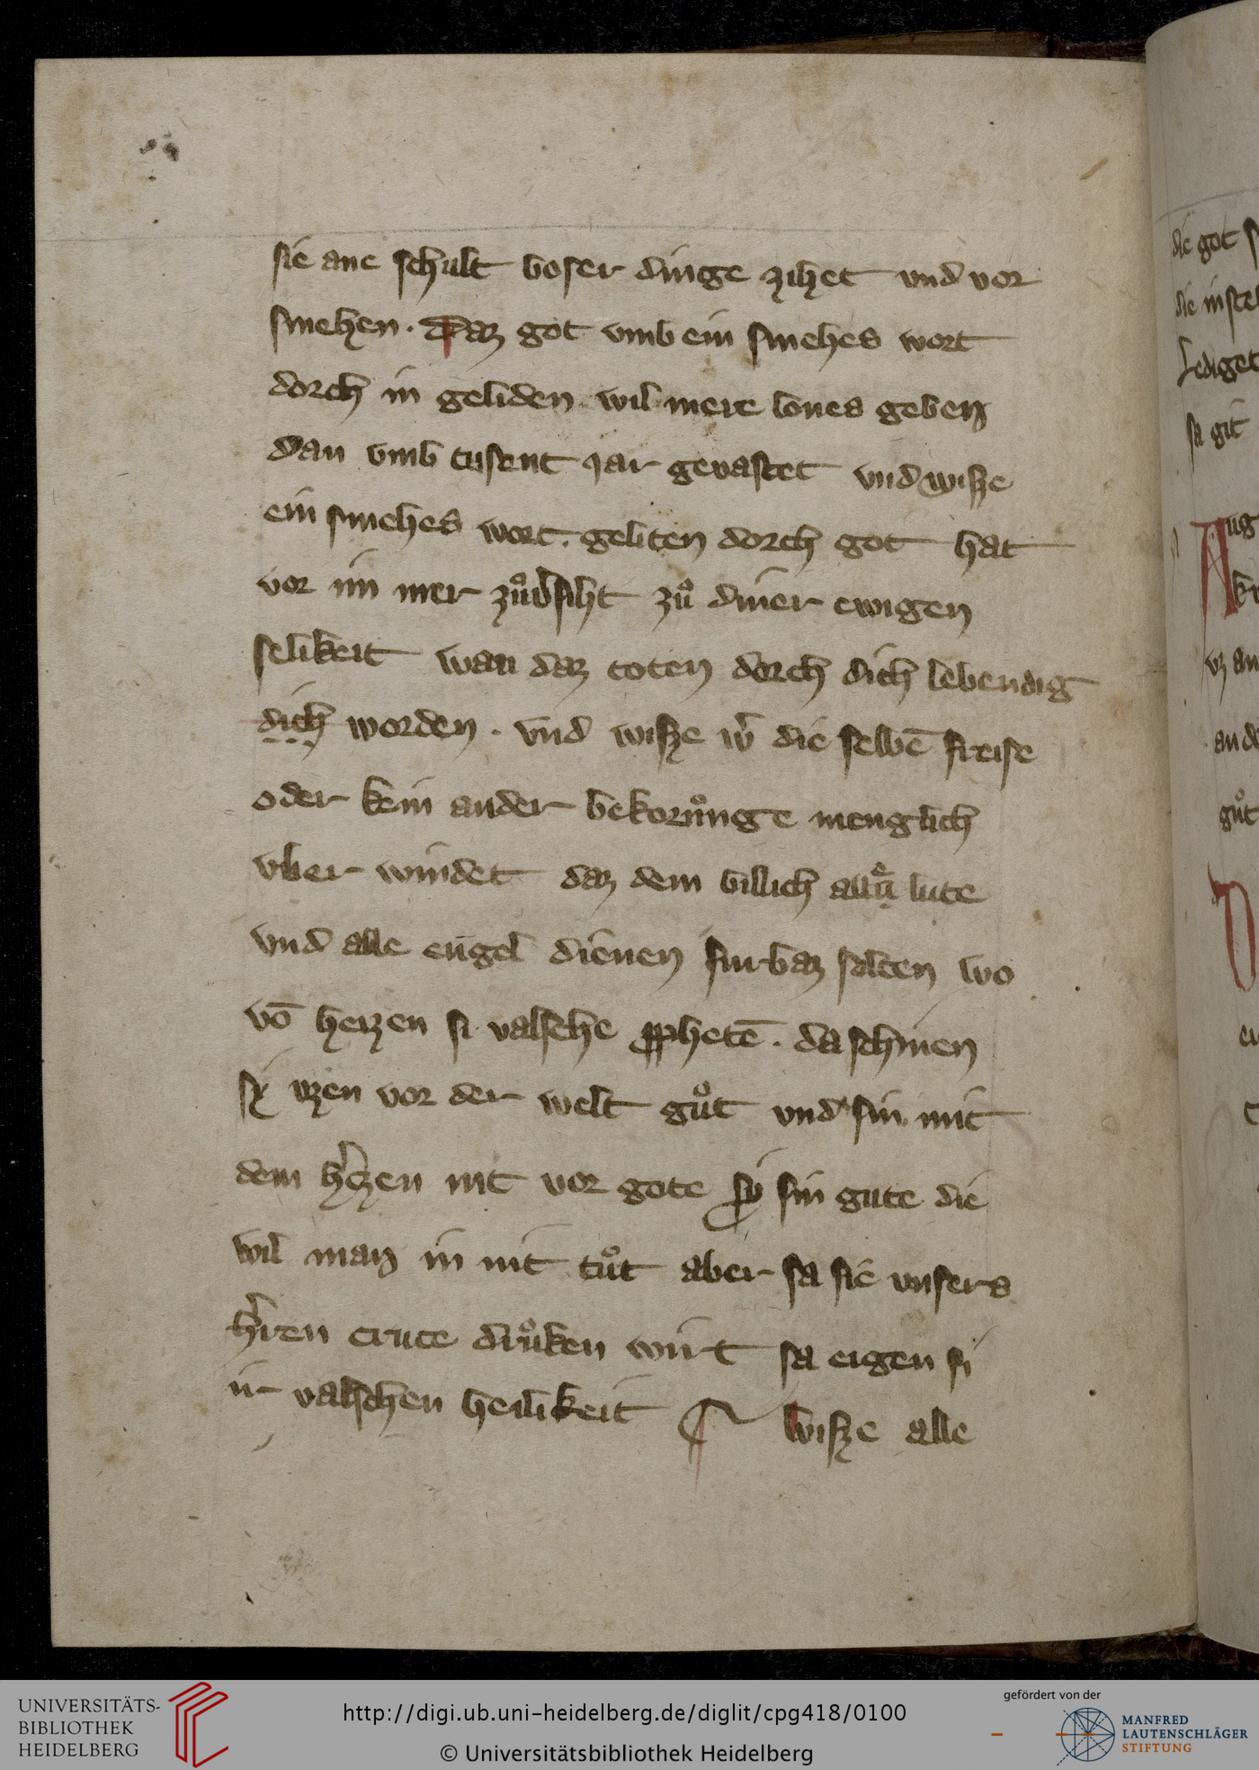 sie ane schult boser dinge zihet vnd vor
smehen · Daz got vmb ein smehes wort
dorch in geliden wil mere lones geben
Dan vmb tusent jar gevastet vnd wisze
ein smehes wort · geliten dorch got hat
vor im mer zův̾siht zů diner ewigen
selikeit wan daz toten dorch dich lebendig
dich worden · vnd wisze w̾ die selbē freise
oder kein ander bekorůnge menglich
vber windet daz dem billich allů lute
vnd alle engel dienen furbaz solten wo
vō herzen si valsche ꝓphetē · da schinen
sý vzen vor der welt gůt vnd sin mit
dem h̾zen nit vor gote sin gute die
wil man in nit tůt aber sa sie vnsers
h̾ren cruce drůken wirt sa eigen si
ir valschen heilikeit ¶ Wisze alle
die got
die in
Lediget
sa git
Aug
vz an
ande
gůt
UNIVERSITÄTS-
BIBLIOTHEK
HEIDELBERG
http://digi.ub.uni-heidelberg.de/diglit/cpg418/0100
© Universitätsbibliothek Heidelberg
gefördert von der
MANFRED
LAUTENSCHLÄGER
STIFTUNG